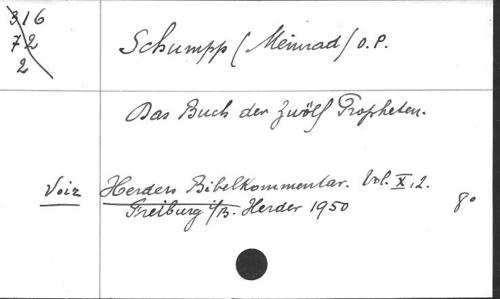 316
72
2
Schumpp (Meinrad) O.P.
Das Buch der zwölf Propheten.
Voir Herders Bibelkommentar. Vol. X, 2.
Freiburg i/B. Herder 1950
8°